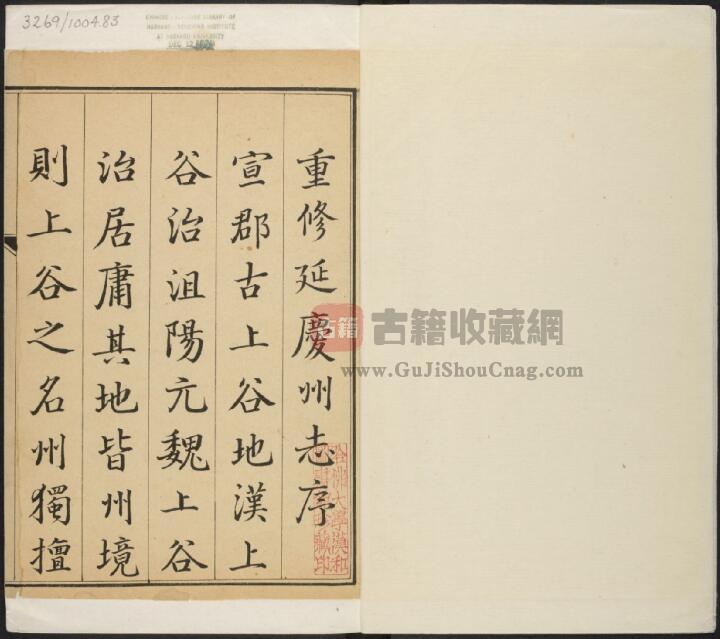 3269/1004.83
CHINESE-JAPANESE LIBRARY OF
HARVARD-YENCHING INSTITUTE
AT HARVARD UNIVERSITY
DEC 12
重修延慶州志序
宣郡古上谷地漢上
谷治沮陽元魏上谷
治居庸其地皆州境
則上谷之名州獨擅
古籍
古籍收藏網
www.GuJiShouCnag.com
哈佛大學漢和
圖書館珍藏印